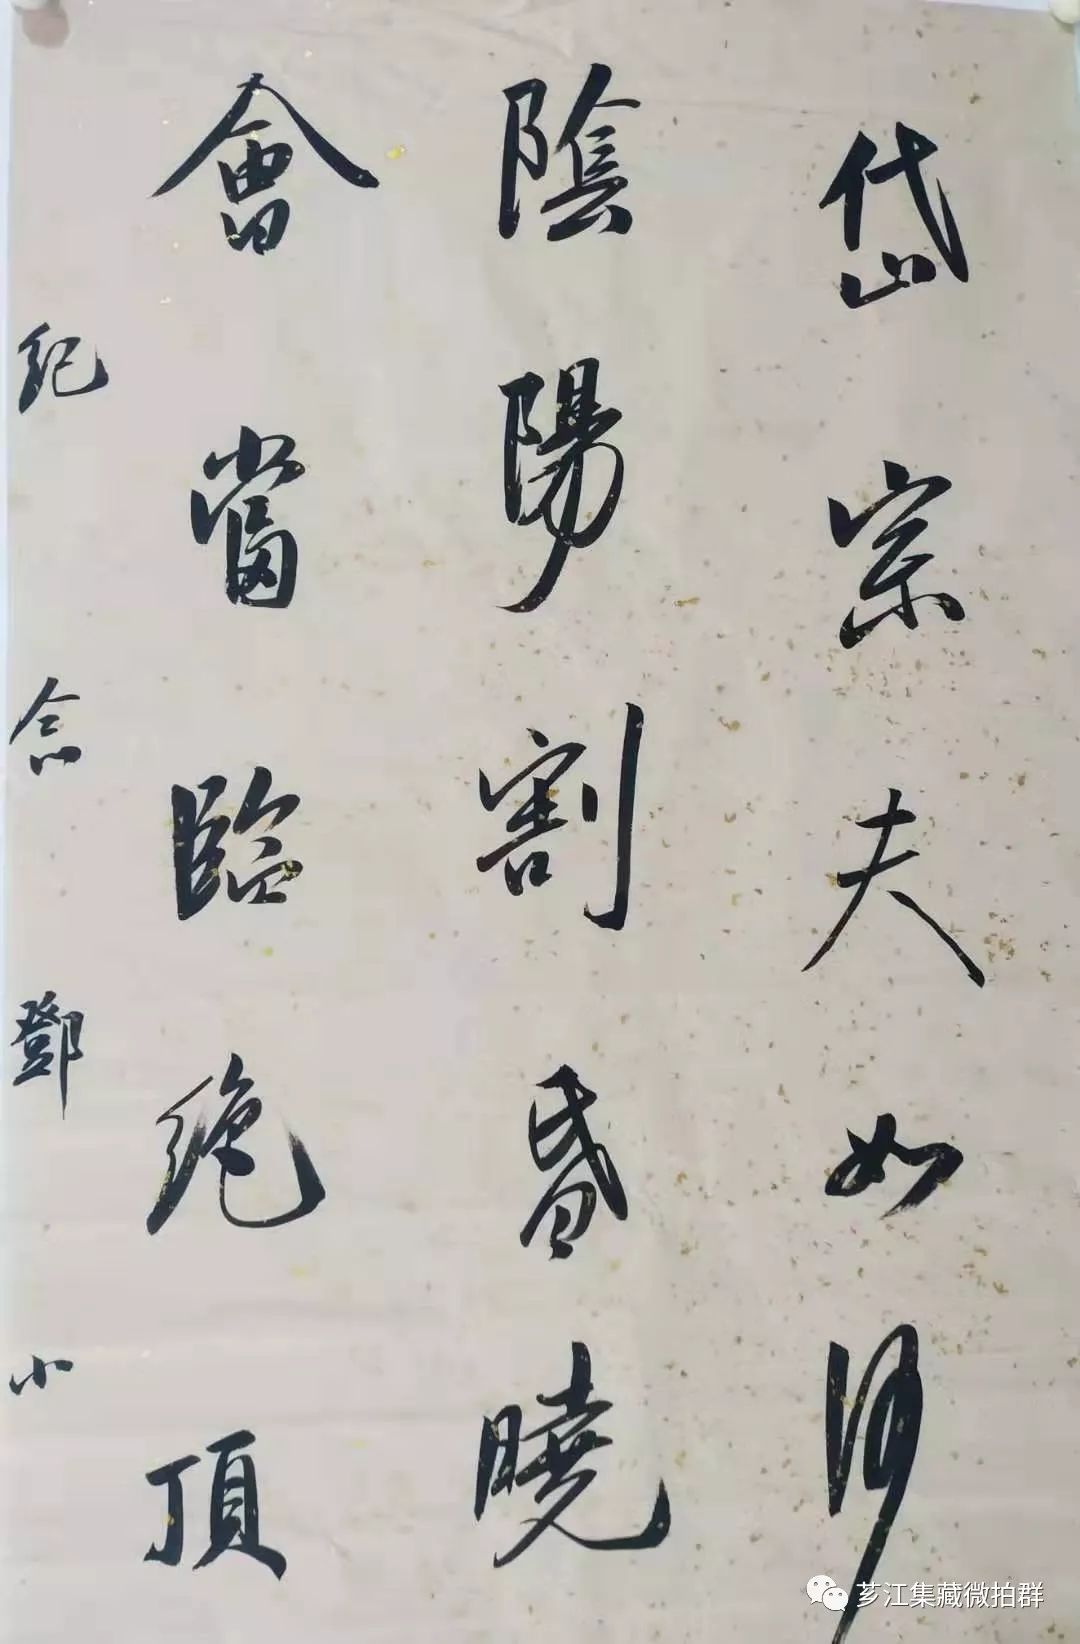 岱宗夫如何
陰陽割昏曉
會當臨絕頂
紀念鄧小
芗江集藏微拍群